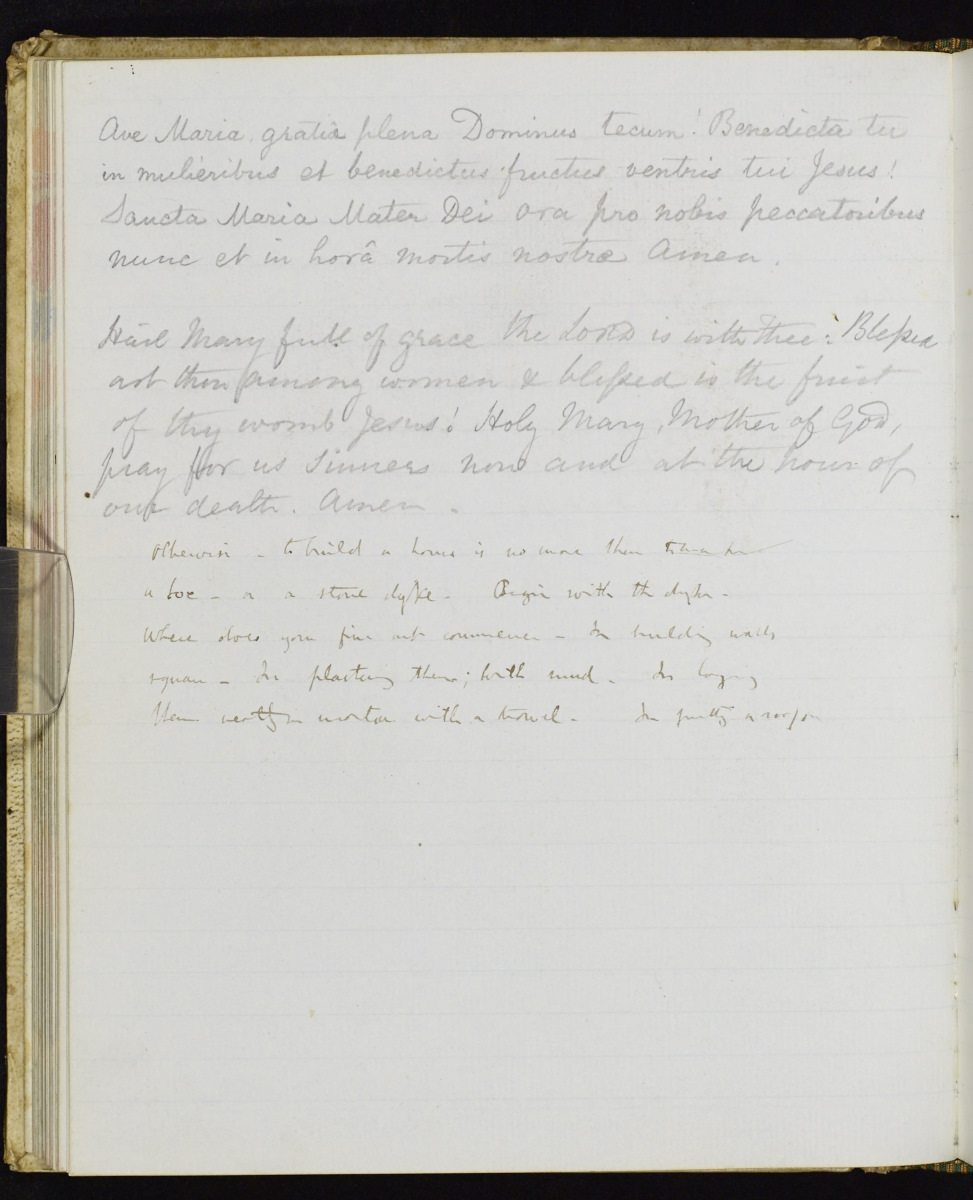 Ave Maria gratiæ plena Dominus tecum! Benedicta tu
in mulieribus et benedictus fructus ventris tui Jesus!
Sancta Maria Mater Dei ora pro nobis peccatoribus
nunc et in horâ mortis nostræ Amen.
Hail Mary full of grace the Lord is with thee: Blessed
art thou among women & blessed is the fruit
of thy womb Jesus! Holy Mary, Mother of God,
pray for us Sinners now and at the hour of
our death. Amen.
otherwise - to build a house is no more than
a box - or a stone dyke - Begin with the dyke -
Where does your fine art commence - In building walls
square - In plastering them; with mud - In laying
them neatly in mortar with a trowel - In putting a roof on